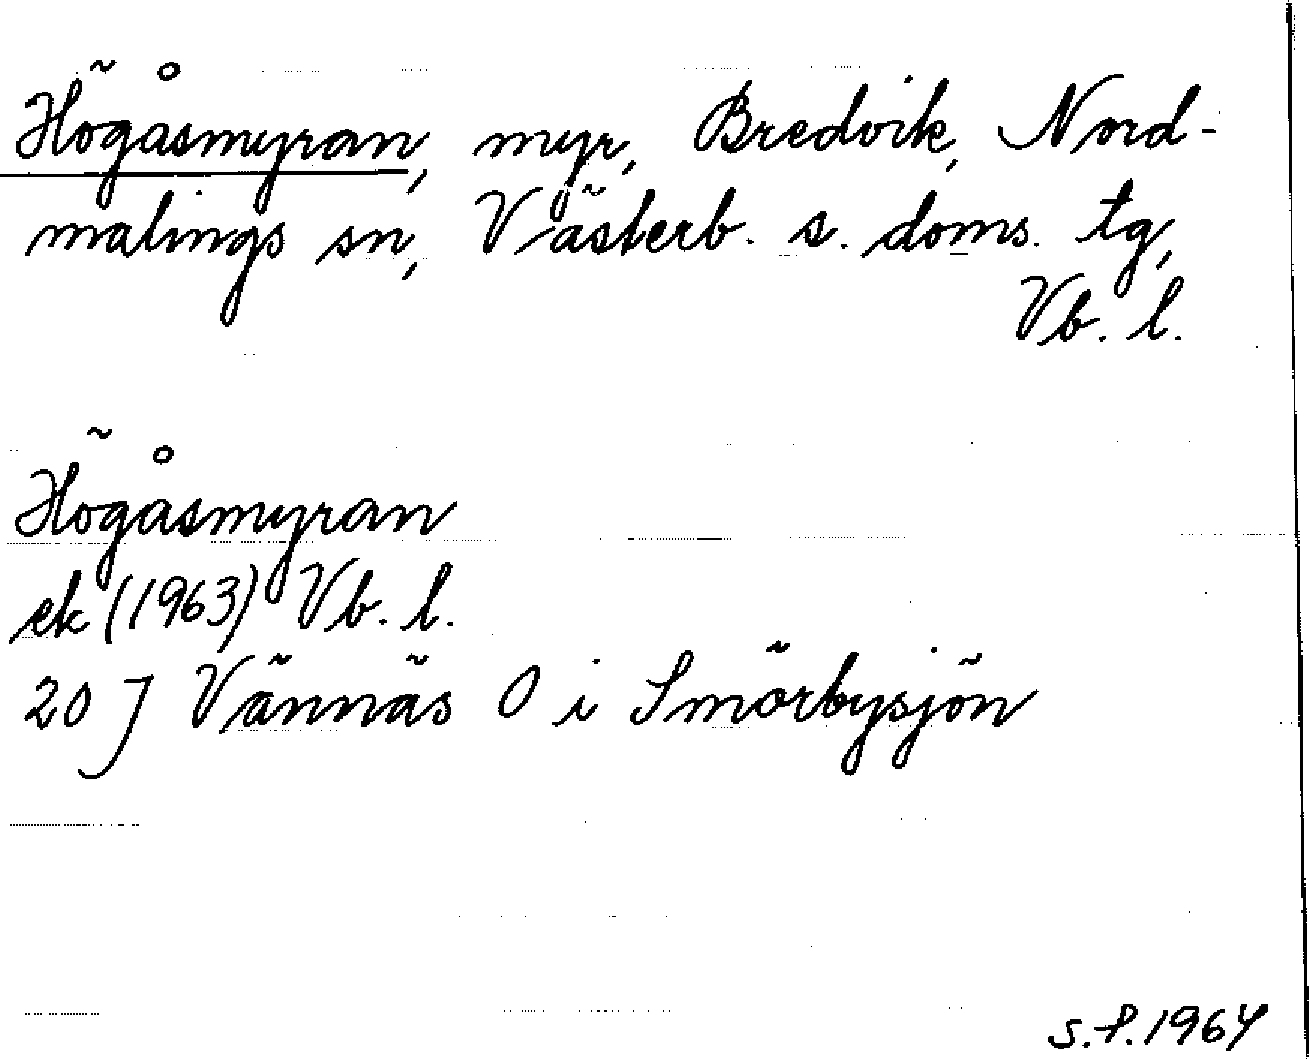 Högåsmyran, myr, Bredvik, Nord-
malings sn, Västerb. s. doms. tg,
Vb. l.
Högåsmyran
ek (1963) Vb. l.
20 J Vännäs O i Smörbysjön
s.f. 1964